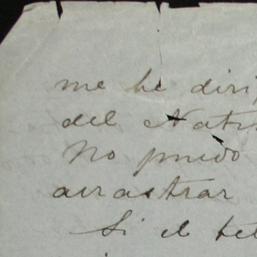 me he diri
del Nat
No puedo
arrastrar
Si el tel